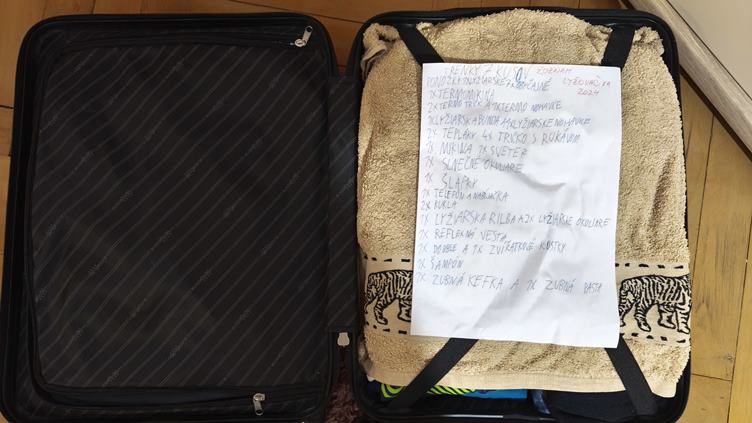 TRENKY 7 KUSOV ZOZNAM
PONOŽKY 7X LYŽIARSKE 7X OBYČAJNÉ LYŽOVAČKA
1X TERMOMIKINA 2024
2X TERMO TRIČK A 1X TERMO NOHAVICE
1X LYŽIARSKA BUNDA 1X LYŽIARSKE NOHAVICE
2X TEPLÁKY 4X TRIČKO S RUKÁVOM
1X MIKINA 1X SVETER
1X SLNEČNÉ OKULIARE
1X ŠLAPKY
1X TELEFÓN A NABÍJAČKA
2X KUKLA
1X LYŽIARSKA RILBA A 2X LYŽIARSKE OKULIARE
1X REFLEXNÁ VESTA
1X DOUBLE A 1X ZVIERATKOVÉ KOSTKY
1X ŠAMPÓN
1X ZUBNÁ KEFKA A 1X ZUBNÁ PASTA